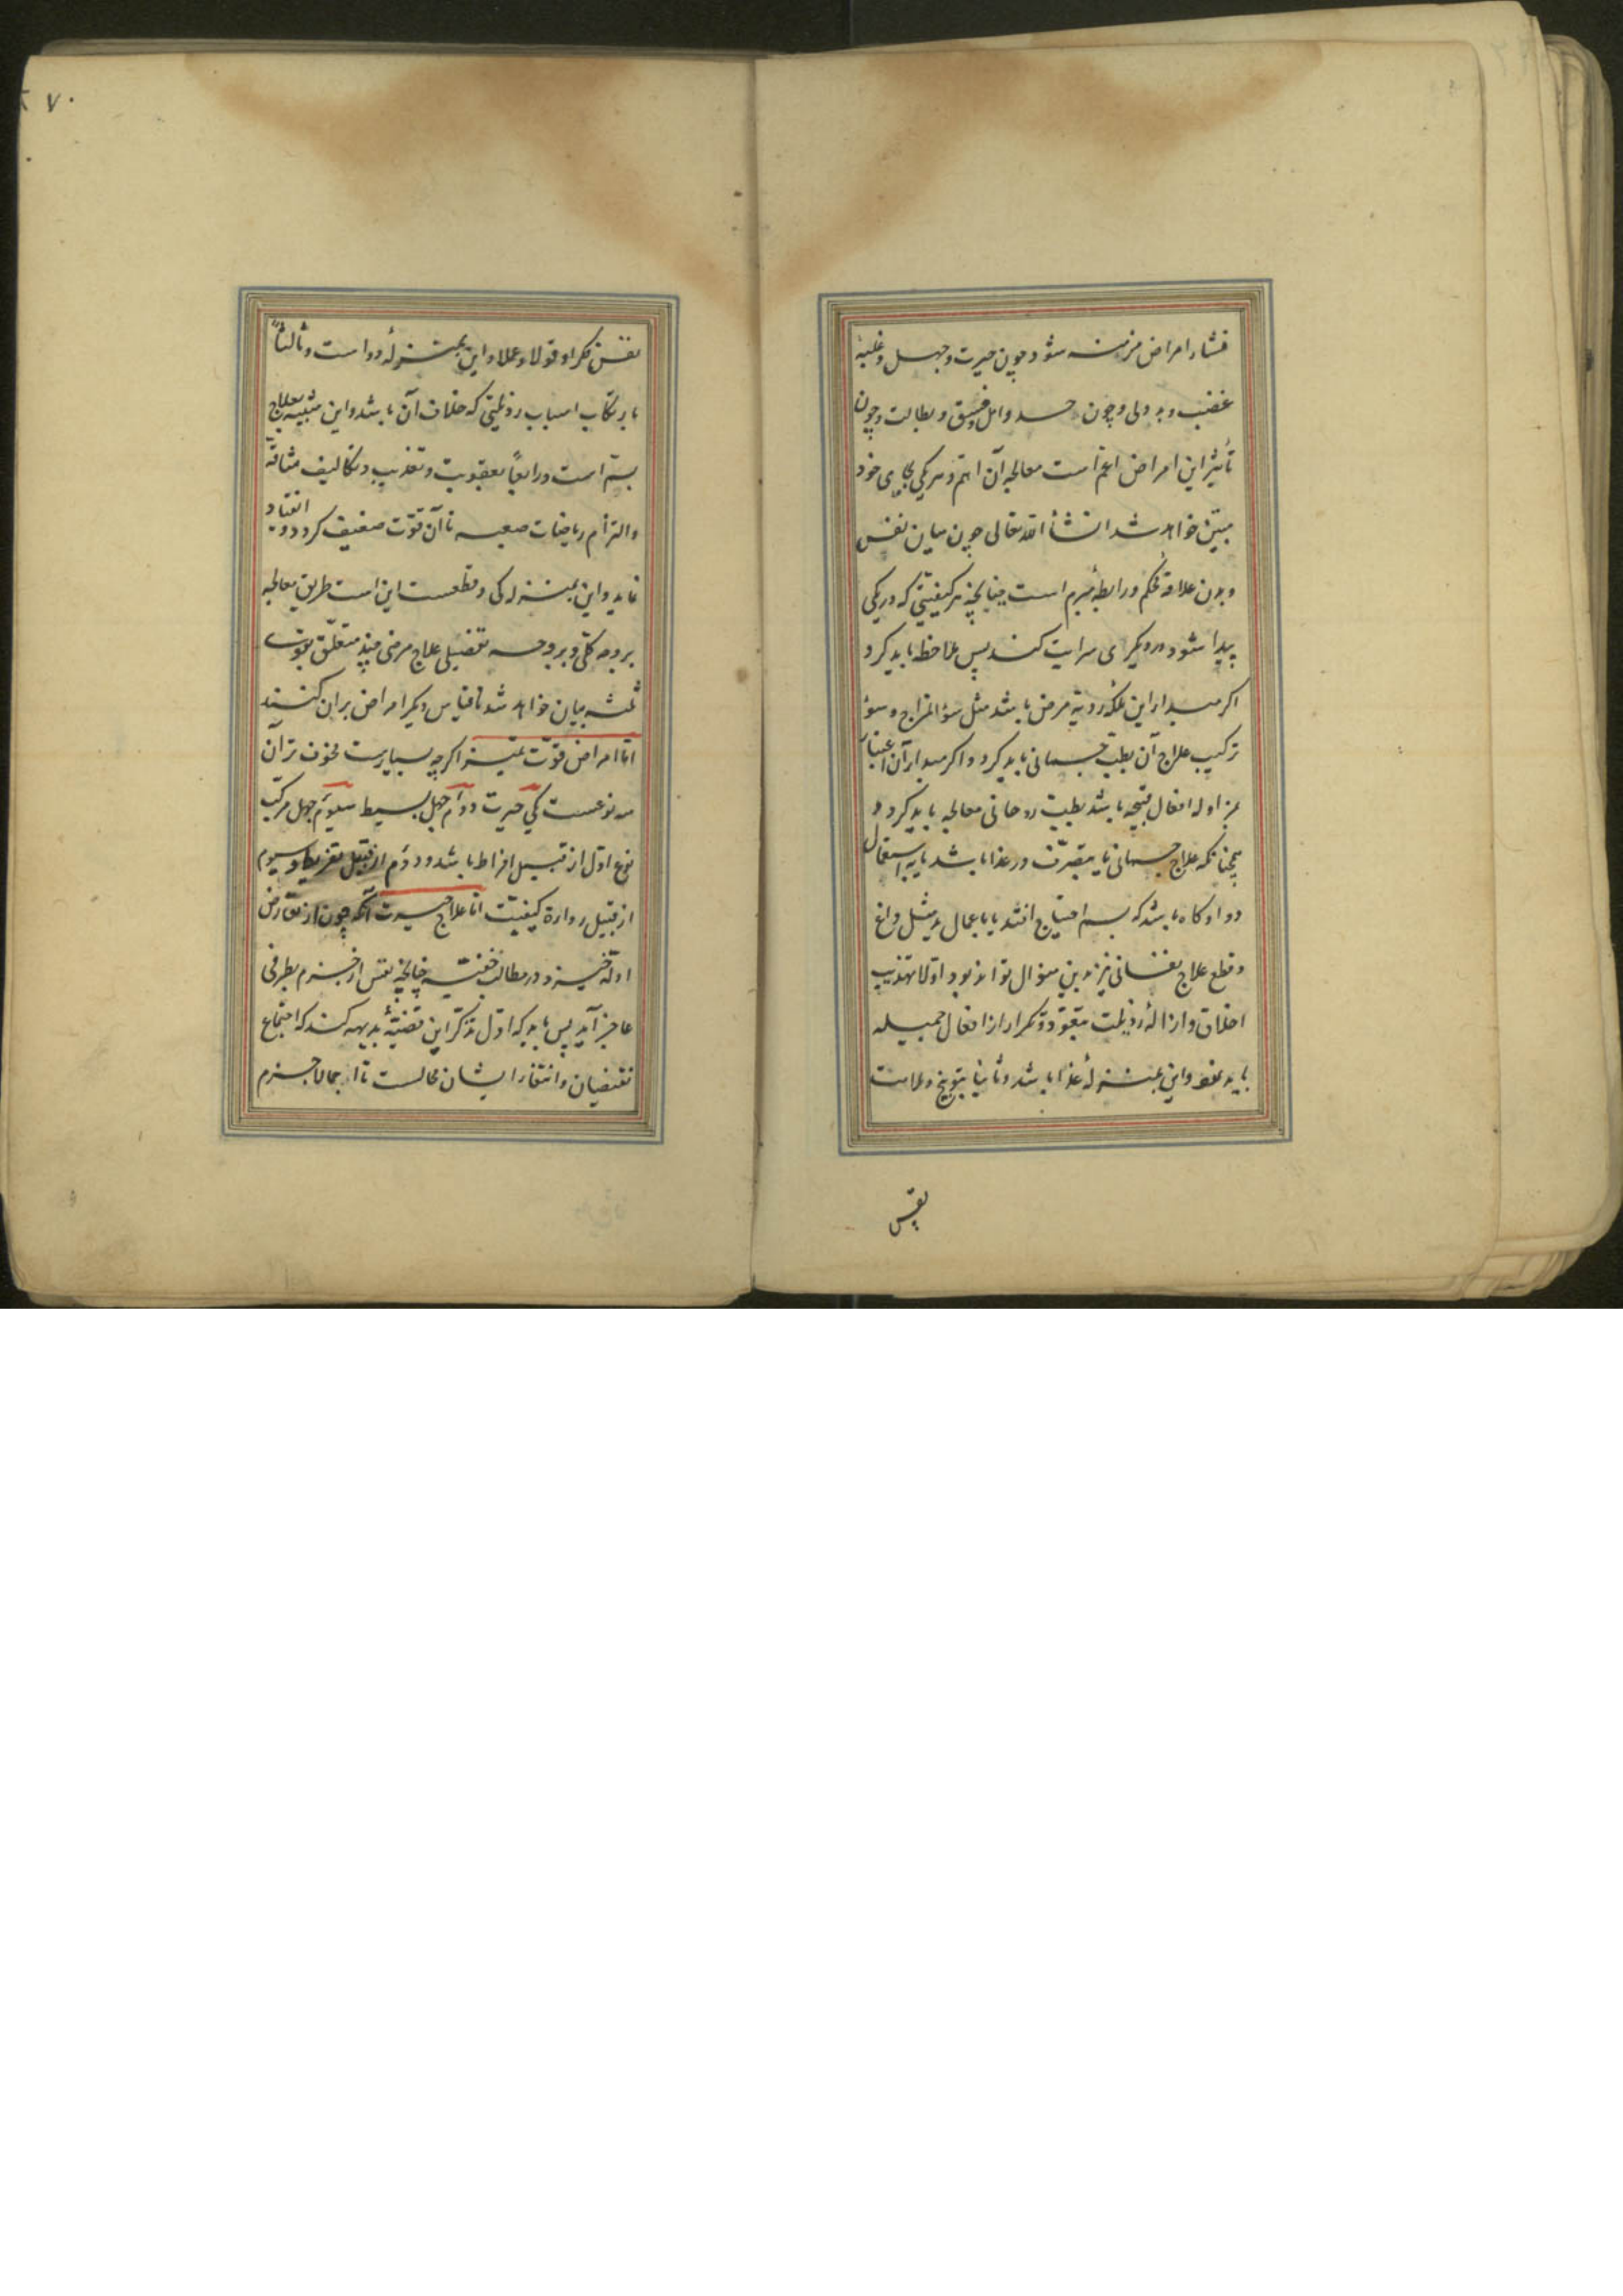 منشاء امراض مزمنه شود چون حیرت و جهل و غلبهٔ
غضب و بد دلی و چون حسد و امل و فسق و بطالت و چون
تأثیر این امراض اعمّ است معالجه آن اتمّ و هر یکی بجای خود
مبیّن خواهد شد انشأ اللّه تعالی چون میان نفس
و بدن علاقهٔ محکم و رابطهٔ مبرم است چنانچه هر کیفیّتی که در یکی
پیدا شود در دیگری سرایت کند پس ملاحظه باید کرد
اکر مبداء این ملکهٔ ردیهٔ مرض باشد مثل سؤ المزاج و سؤ
ترکیب علاج آن بطبّ جسمانی باید کرد و اکر مبداء آن اعتیاد
بمزاوله افعال قبیحه باشد بطبّ روحانی معالجه باید کرد و
همچنانکه علاج جسمانی یا بتصرّف در غذا باشد یا باستعمال
دوا و کاه باشد که بسم احتیاج افتد یا باعمال ید مثل داغ
و قطع علاج نفسانی نیز بدین منوال تواند بود اولا تهذیب
اخلاق و ازالهٔ رذیلت بتعوّد و تکرار از افعال جمیله
باید نمود و این بمنزلهٔ غذا باشد و ثانیا بتوبیخ و ملامت
نفس
۷۰
نفس فکرا و قولا و عملا و این بمنزلهٔ دوا است و ثالثاً
بارتکاب اسباب رذیلتی که خلاف آن باشد و این شبیه بعلاج
بسمّ است و رابعاً بعقوبت و تعذیب و تکالیف شاقّه
و التزام ریاضات صعبه تا آن قوّت ضعیف کردد و انقیاد
نماید و این بمنزله کی و قطعست این است طریق معالجه
بر وجه کلّی و بر وجه تفضیلی علاج مرضی چند متعلّق بقوت
ثلثه بیان خواهد شد تا قیاس دیکر امراض بران کنند
امّا امراض قوّت تمییز اکرچه بسیارست مخوف ترآن
سه نوعست یکی حیرت دوّم جهل بسیط سیوّم جهل مرکّب
نوع اوّل از قبیل افراط باشد و دوّم از قبیل تفریط و سیوم
از قبیل رداءة کیفیّت امّا علاج حیرت آنکه چون از تعارض
ادلّه خیزد در مطالب خفیّه چنانچه نفس از جزم بطرفی
عاجز آید پس باید که اوّل تذکّر این قضیّهٔ بدیهه کند که اجتماع
نقیضان و انتفاء ایشان محالست تا اجمالا جزم